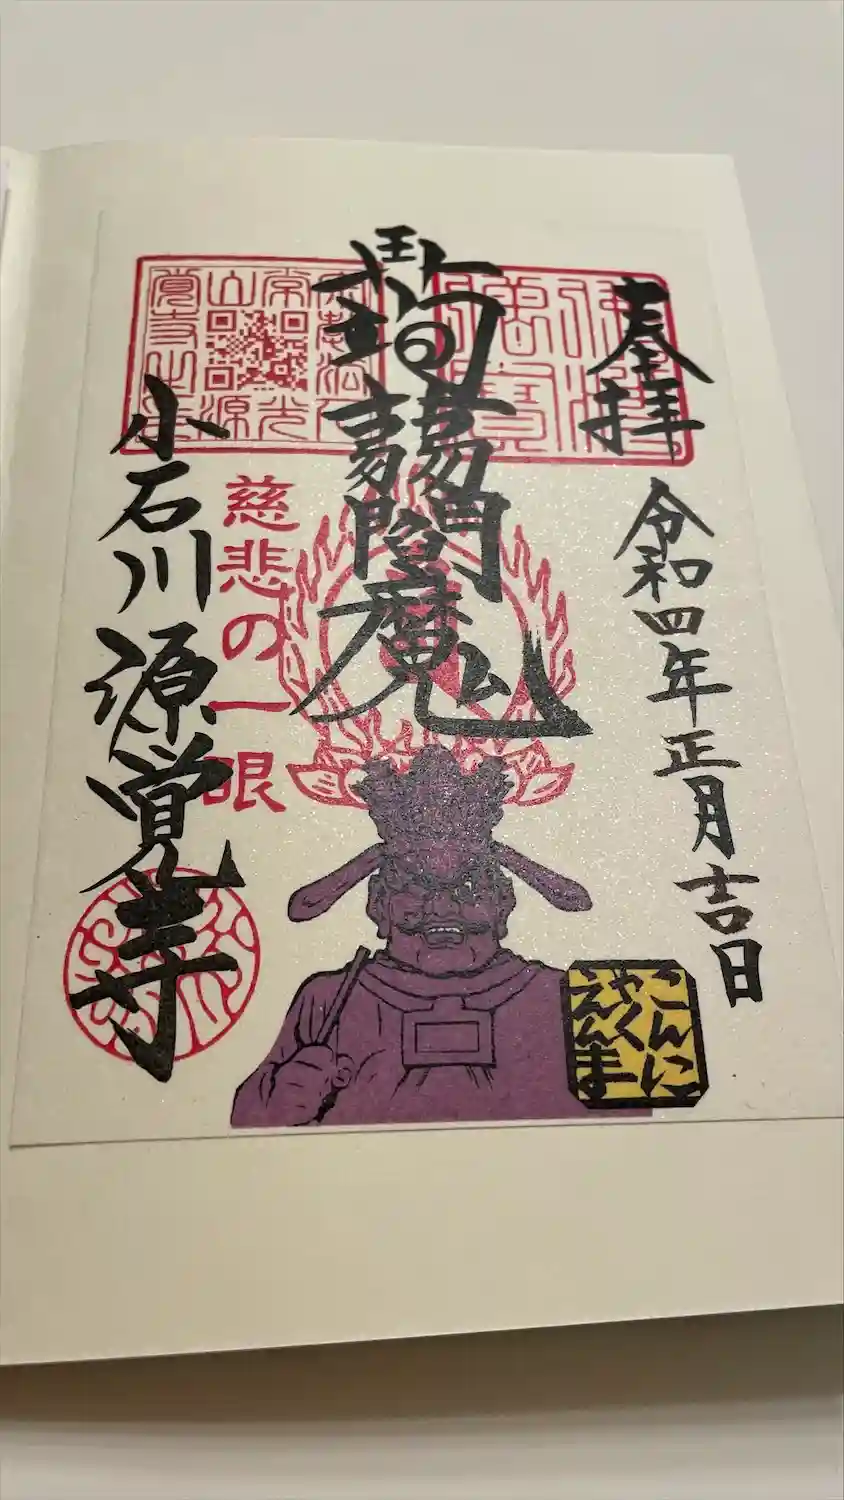 奉拝
令和四年正月吉日
蒟蒻閻魔
慈悲の一眼
小石川源覚寺
こんに
ゃく
えんま